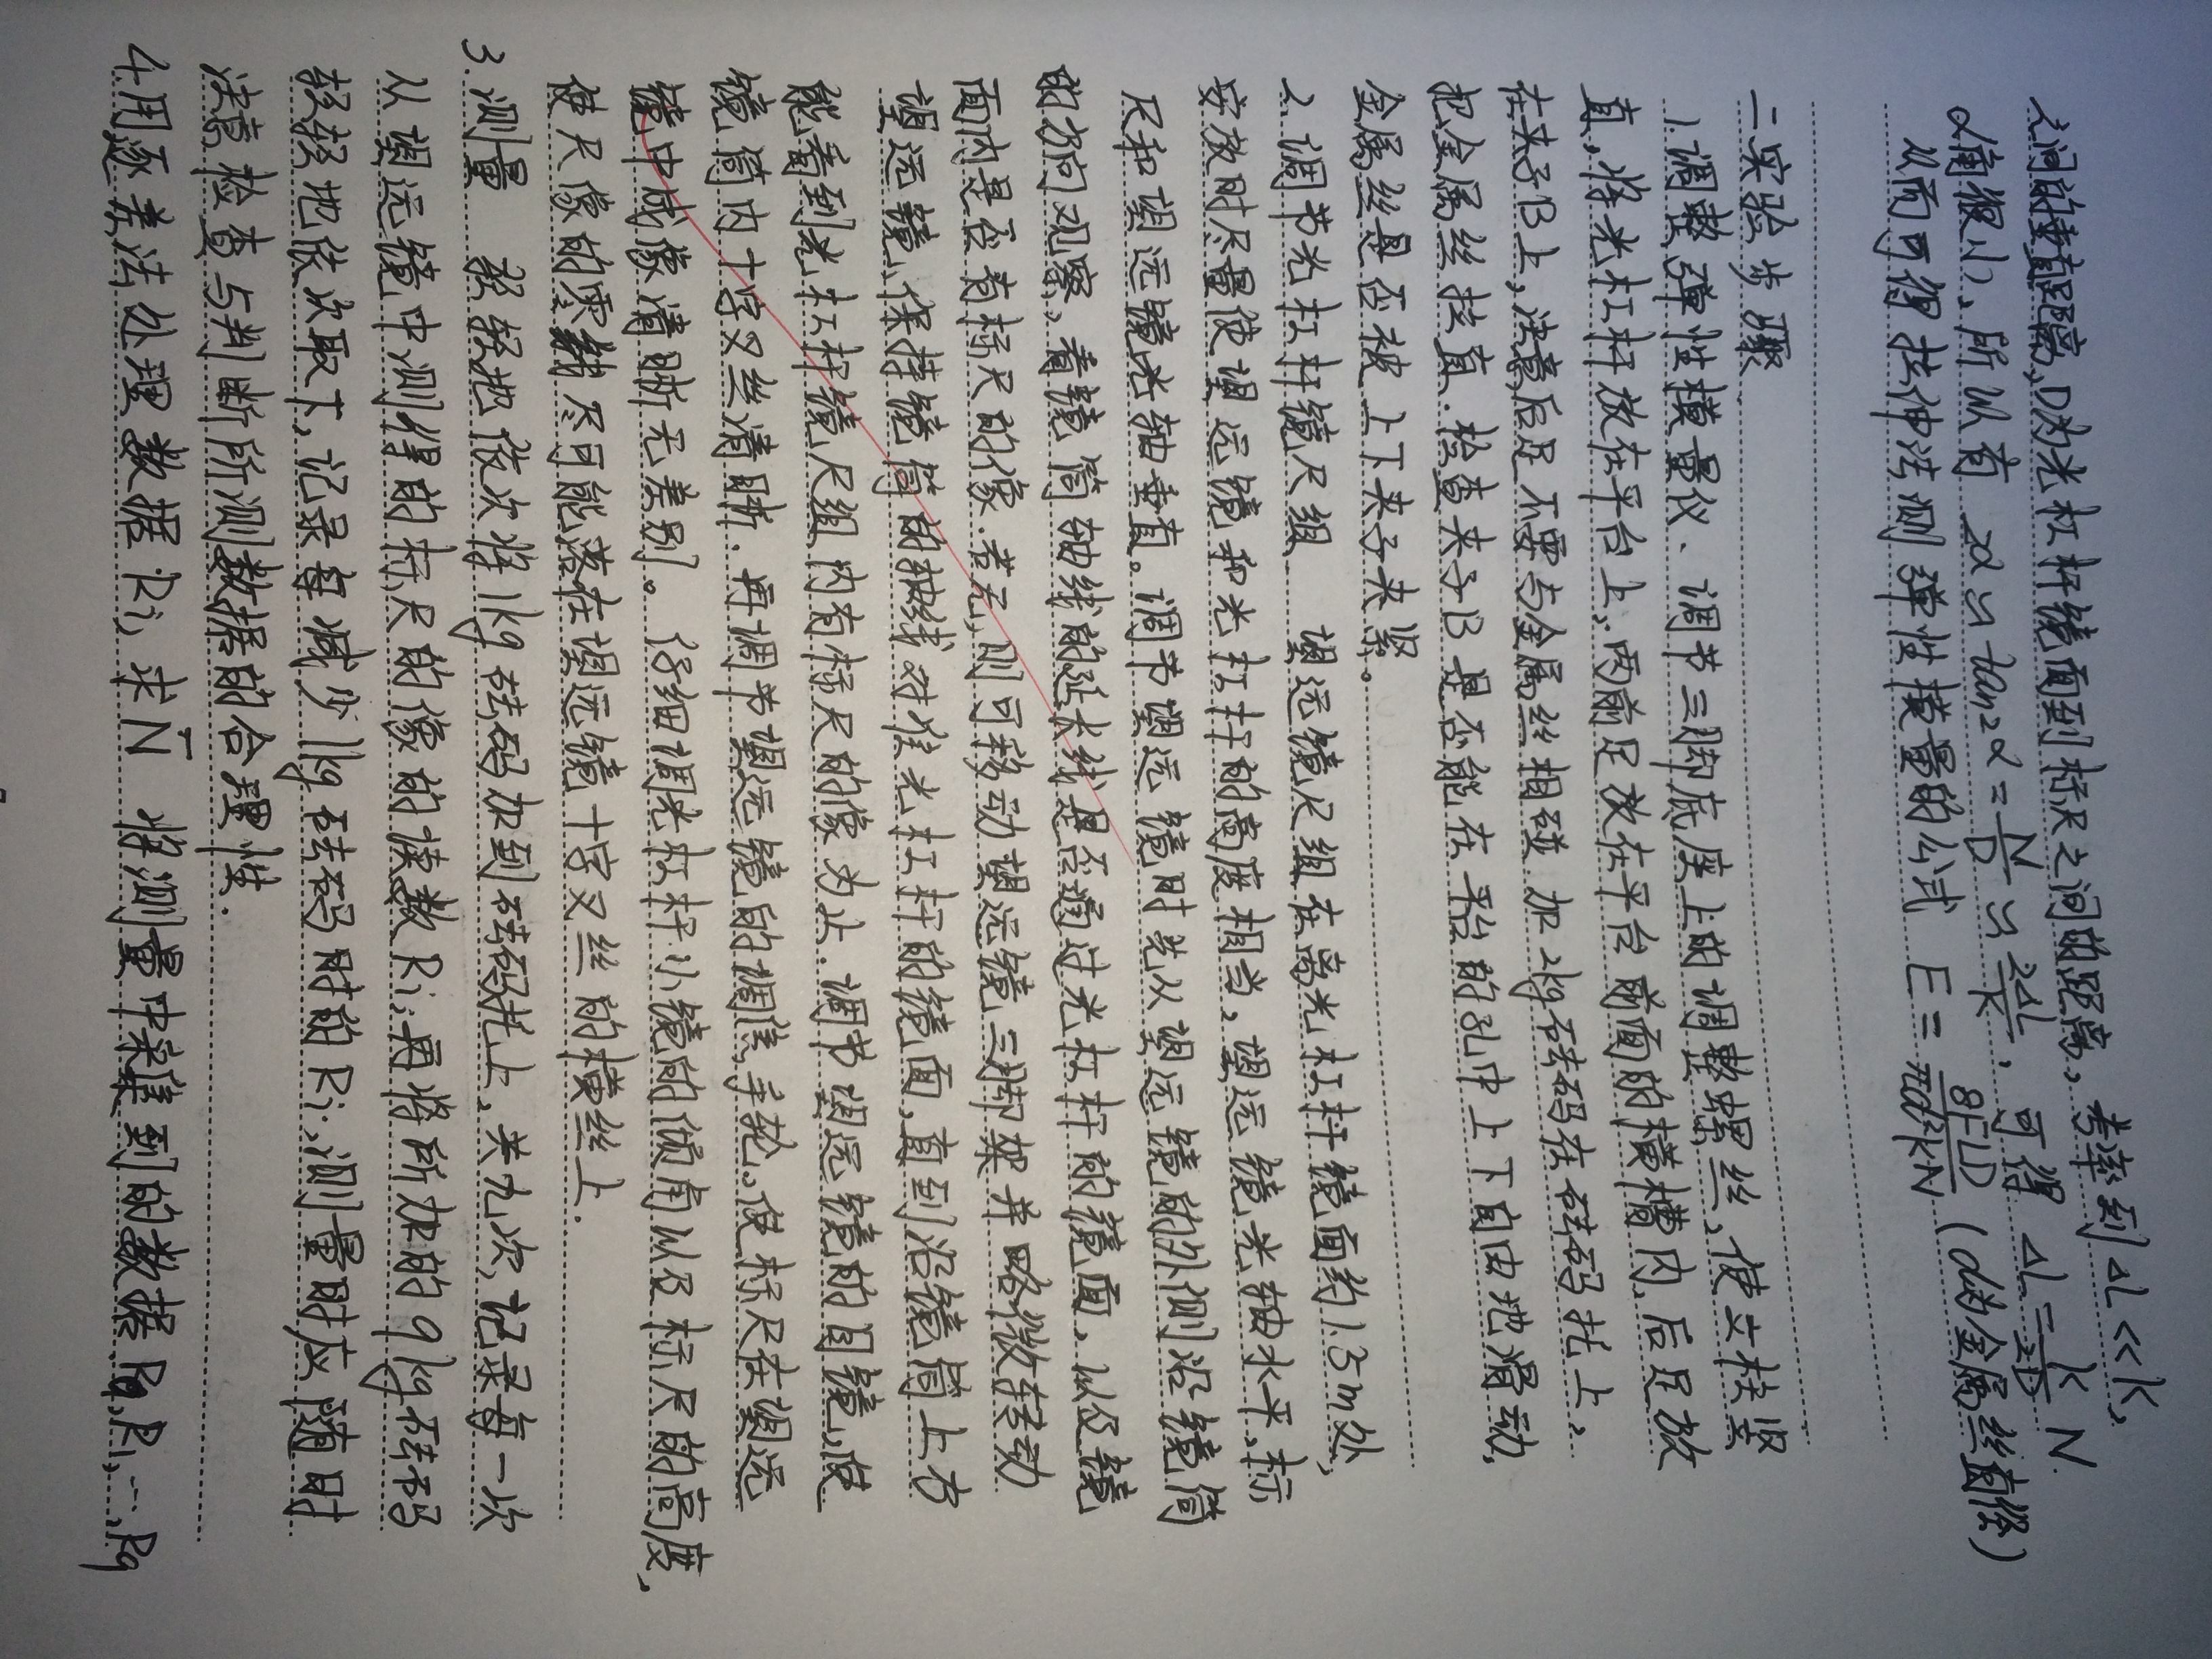 之间的垂直距离,D为光杠杆镜面到标尺之间的距离,考虑到 ΔL<<K,
α角很小,所以有 2α≈tan2α=N/D≈2ΔL/K,可得 ΔL=K/2D N.
从而可得拉伸法测弹性模量的公式 E=8FLD/πd²KN (d为金属丝直径)
二实验步骤
1.调整弹性模量仪.调节三脚底座上的调整螺丝,使立柱竖
直,将光杠杆放在平台上,两前足放在平台前面的横槽内,后足放
在夹子B上,注意后足不要与金属丝相碰.加2kg砝码在砝码托上,
把金属丝拉直.检查夹子B是否能在平台的孔中上下自由地滑动,
金属丝是否被上下夹子夹紧。
2.调节光杠杆镜尺组 望远镜尺组在离光杠杆镜面约1.3m处,
安放时尽量使望远镜和光杠杆的高度相当,望远镜光轴水平,标
尺和望远镜光轴垂直。调节望远镜时先从望远镜的外侧沿镜筒
的方向观察,看镜筒轴线的延长线是否通过光杠杆的镜面,以及镜
面内是否有标尺的像.若无,则可移动望远镜三脚架并略微转动
望远镜,保持镜筒的轴线对准光杠杆的镜面,直到沿镜筒上方
能看到光杠杆镜尺组内有标尺的像为止.调节望远镜的目镜,使
镜筒内十字叉丝清晰.再调节望远镜的调焦手轮,使标尺在望远
镜中成像清晰无差别。仔细调光杠杆小镜的倾角以及标尺的高度,
使尺像的零线尽可能落在望远镜十字叉丝的横丝上.
3.测量 轻轻地依次将1kg砝码加到砝码托上,共九次,记录每一次
从望远镜中测得的标尺的像的读数Ri;再将所加的9kg砝码
轻轻地依次取下,记录每减少1kg砝码时的Ri,测量时应随时
注意检查与判断所测数据的合理性.
4.用逐差法处理数据Ri,求N̄ 将测量中采集到的数据R0,R1,…,R9